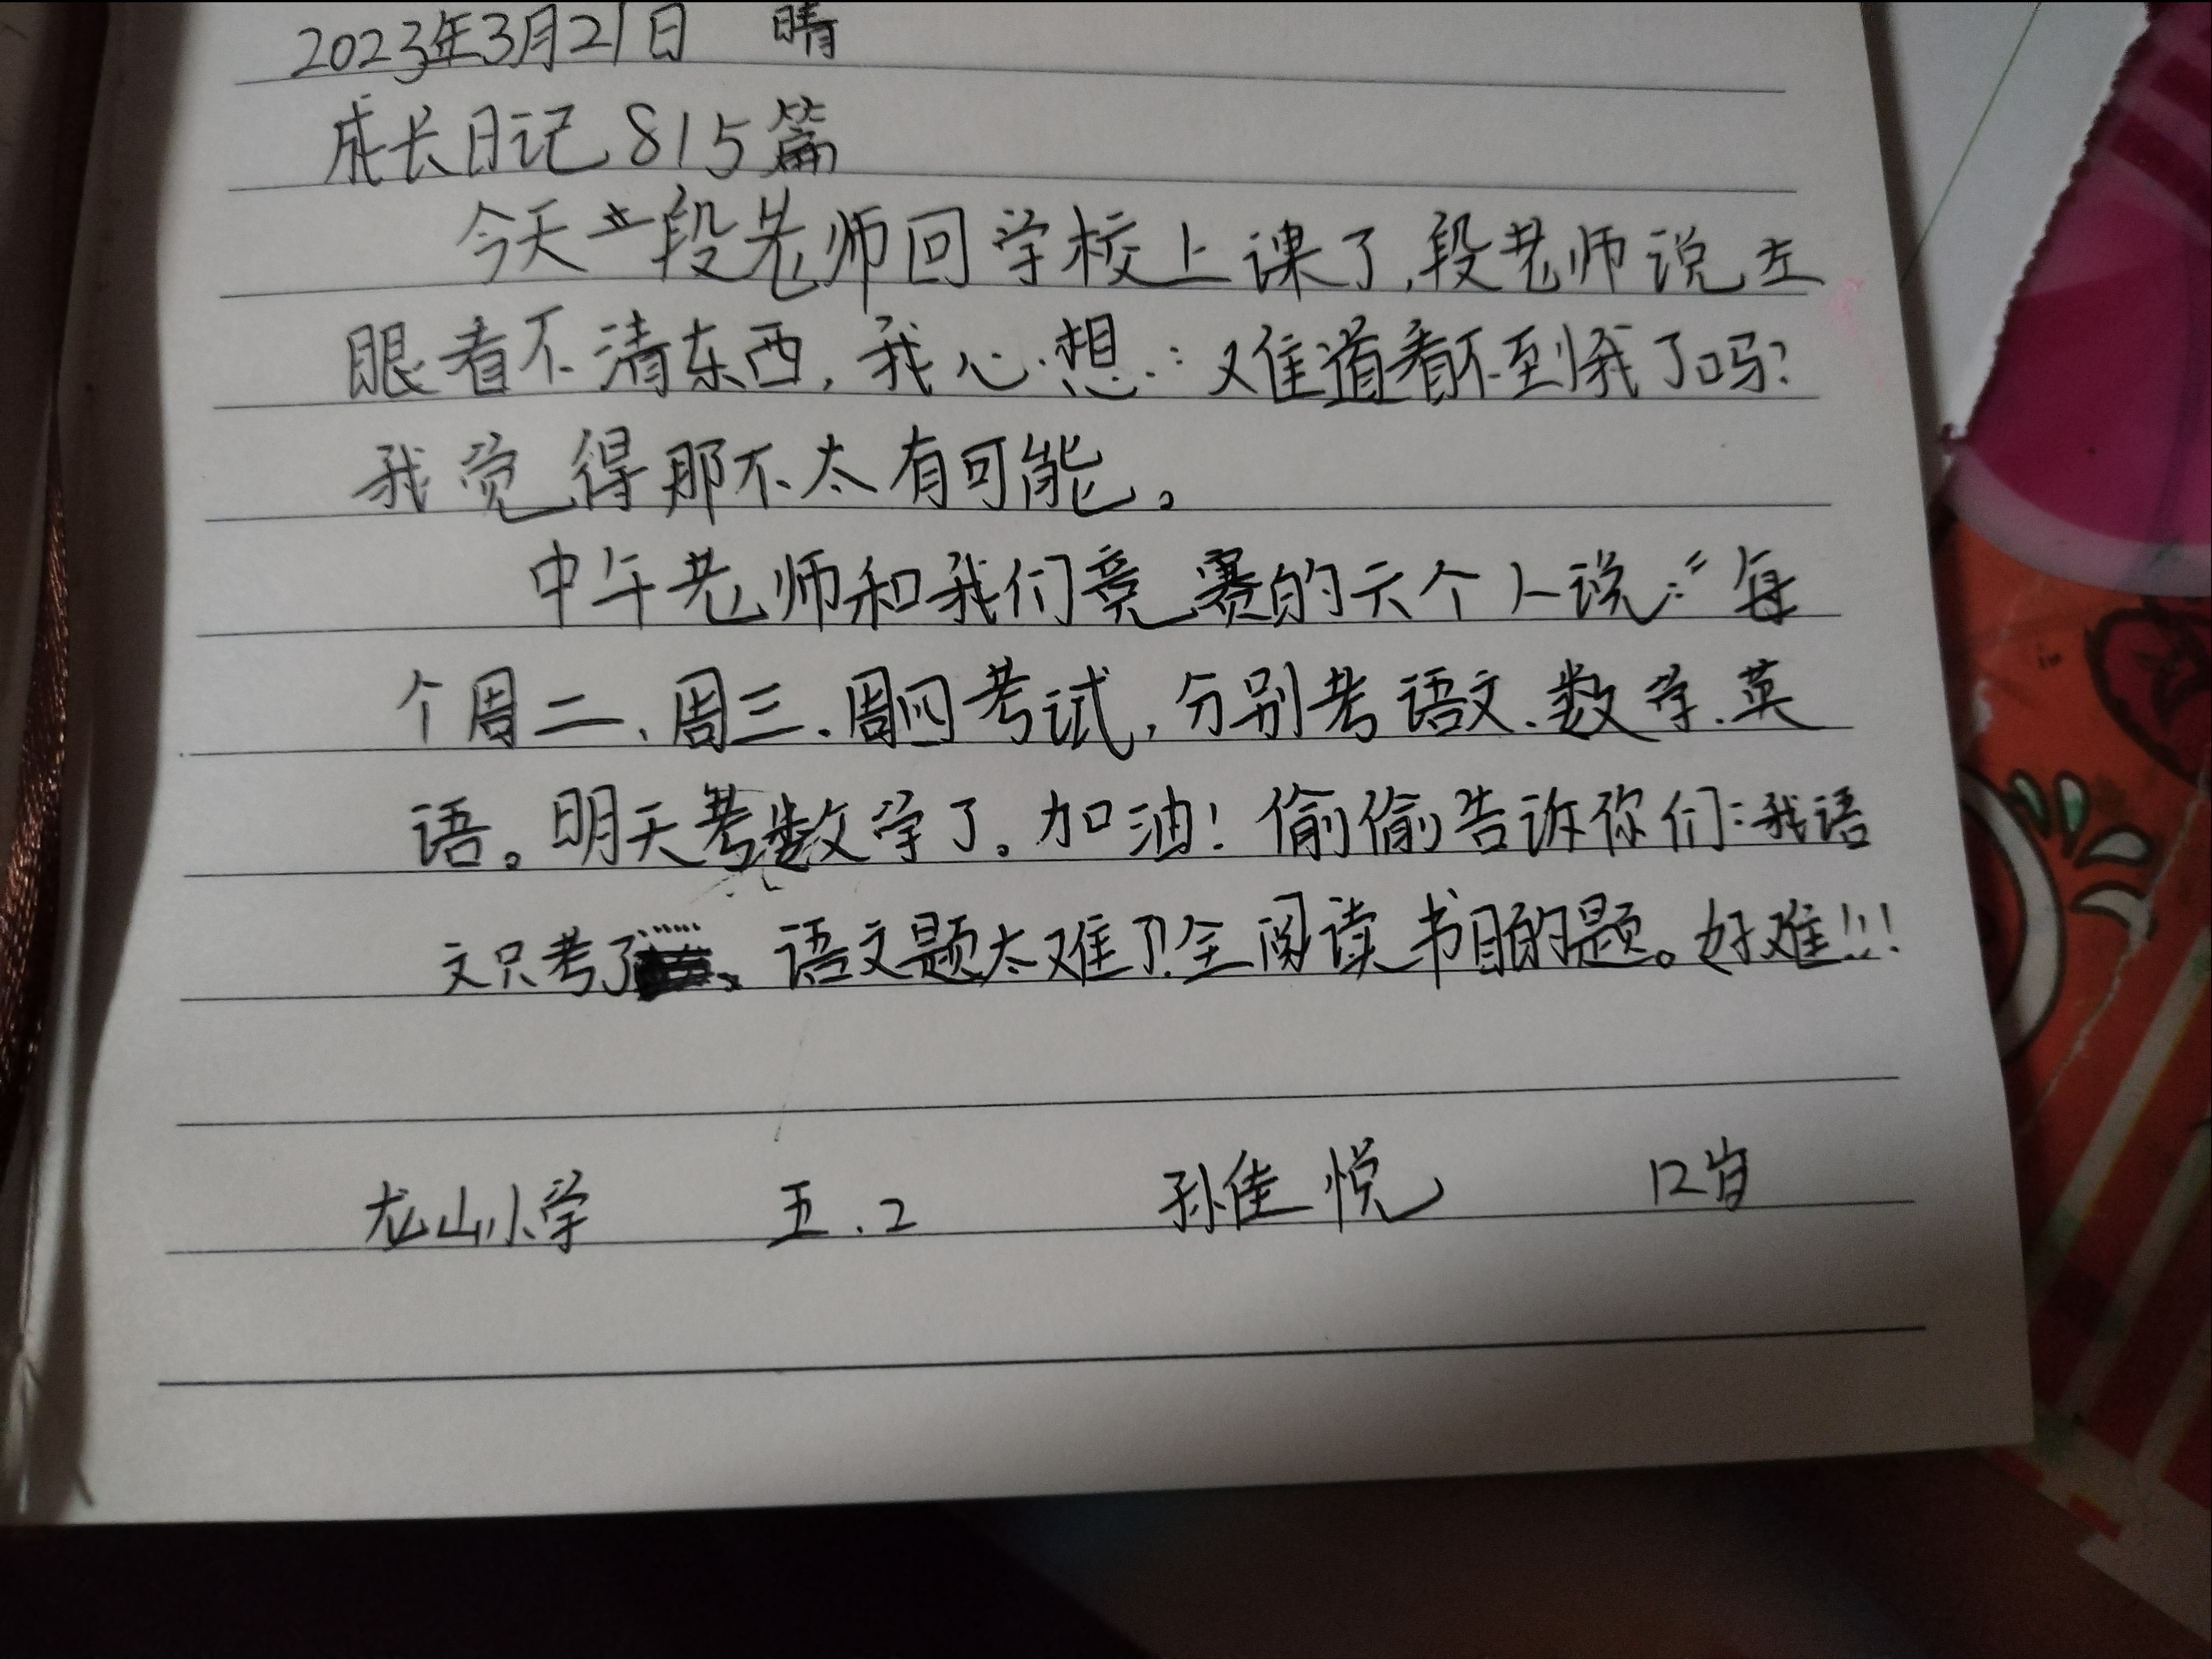 2023年3月21日 晴
成长日记815篇
今天段老师回学校上课了,段老师说左
眼看不清东西,我心想:难道看不到我了吗?
我觉得那不太有可能。
中午老师和我们竞赛的六个人说:“每
个周二、周三、周四考试,分别考语文、数学、英
语。明天考数学了。加油!偷偷告诉你们:我语
文只考了、语文题太难了!全阅读书目的题。好难!!!
龙山小学 五.2 孙佳悦 12岁